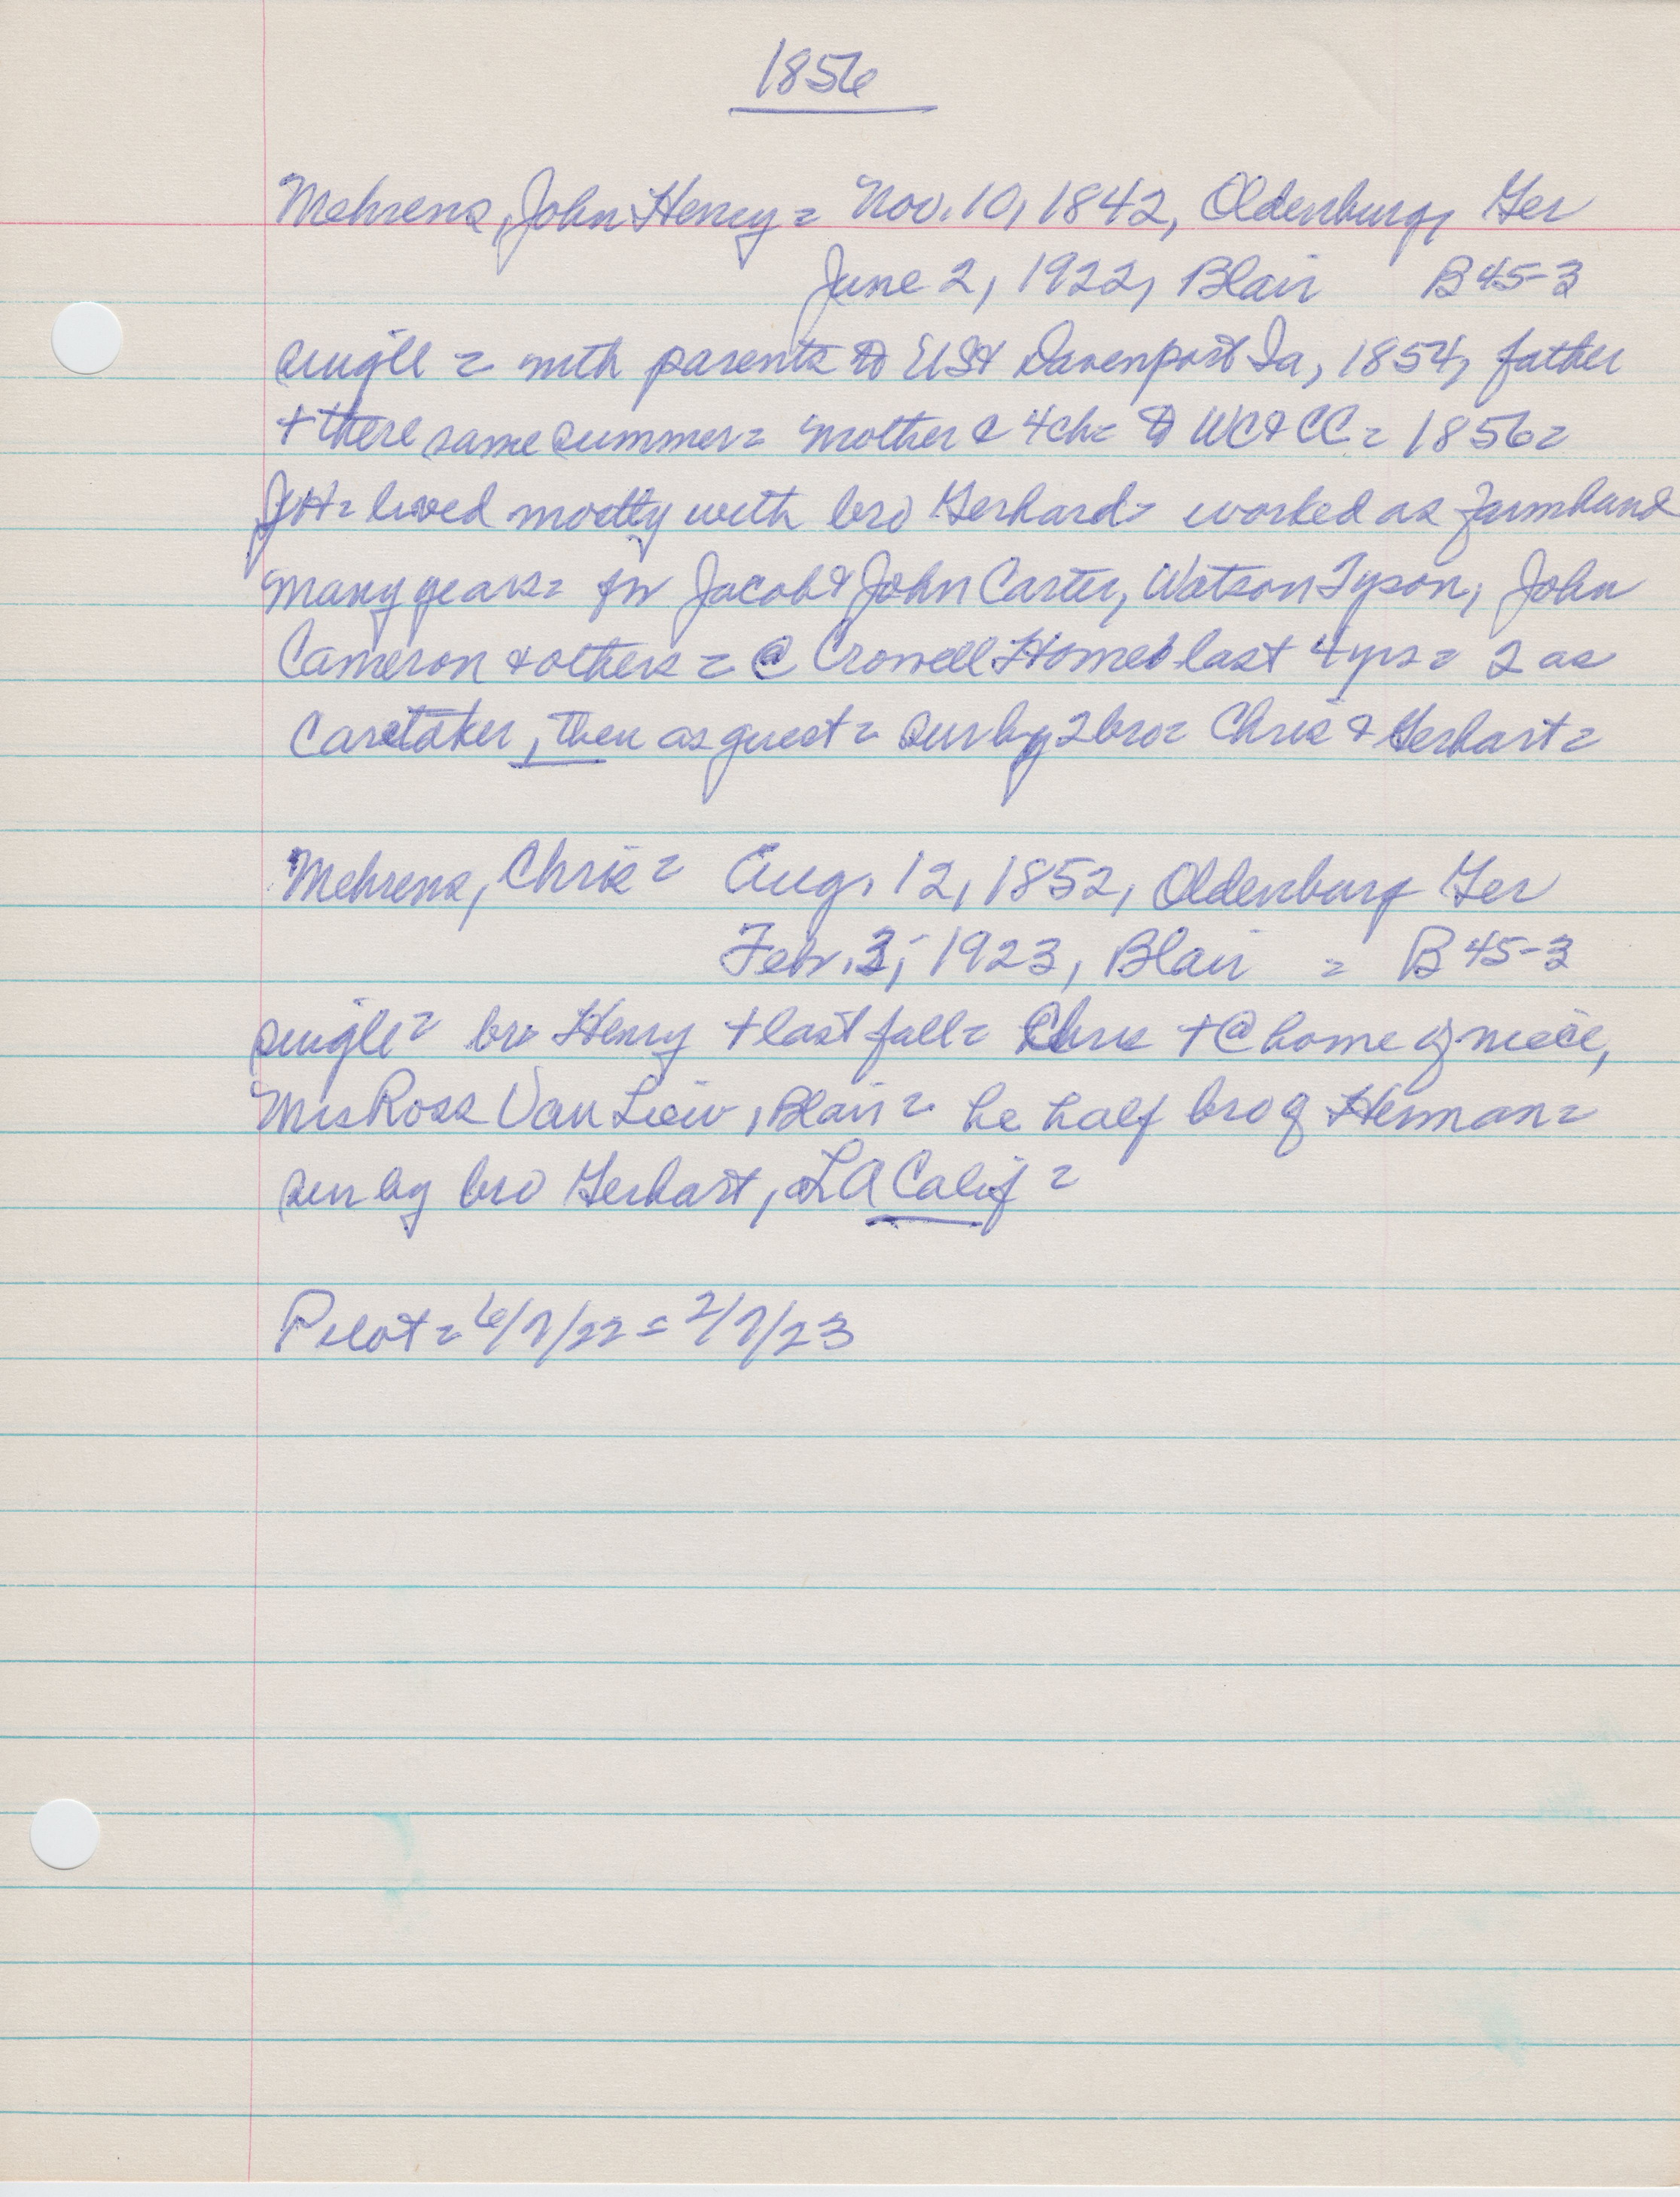 1856
Mehrens, John Henry = Nov. 10, 1842, Oldenburg, Ger
June 2, 1922, Blair B 45-3
single = with parents to US & Davenport Ia, 1854, father
+ there same summer = mother & 4 ch = to WC & CC = 1856 =
JH = lived mostly with bro Gerhard = worked as farmhand
many years = for Jacob & John Carter, Watson Tyson, John
Cameron & others = @ Crowell Home last 4 yrs = 2 as
Caretaker, then as guest = sur by 2 bro = Chris & Gerhart =
Mehrens, Chris = Aug. 12, 1852, Oldenburg Ger
Feb. 3, 1923, Blair = B 45-3
single = bro Henry + last fall = Chris + @ home of niece,
Mrs Ross Van Liew, Blair = he half bro of Herman =
sur by bro Gerhart, LA Calif =
Pilot = 6/7/22 = 2/7/23